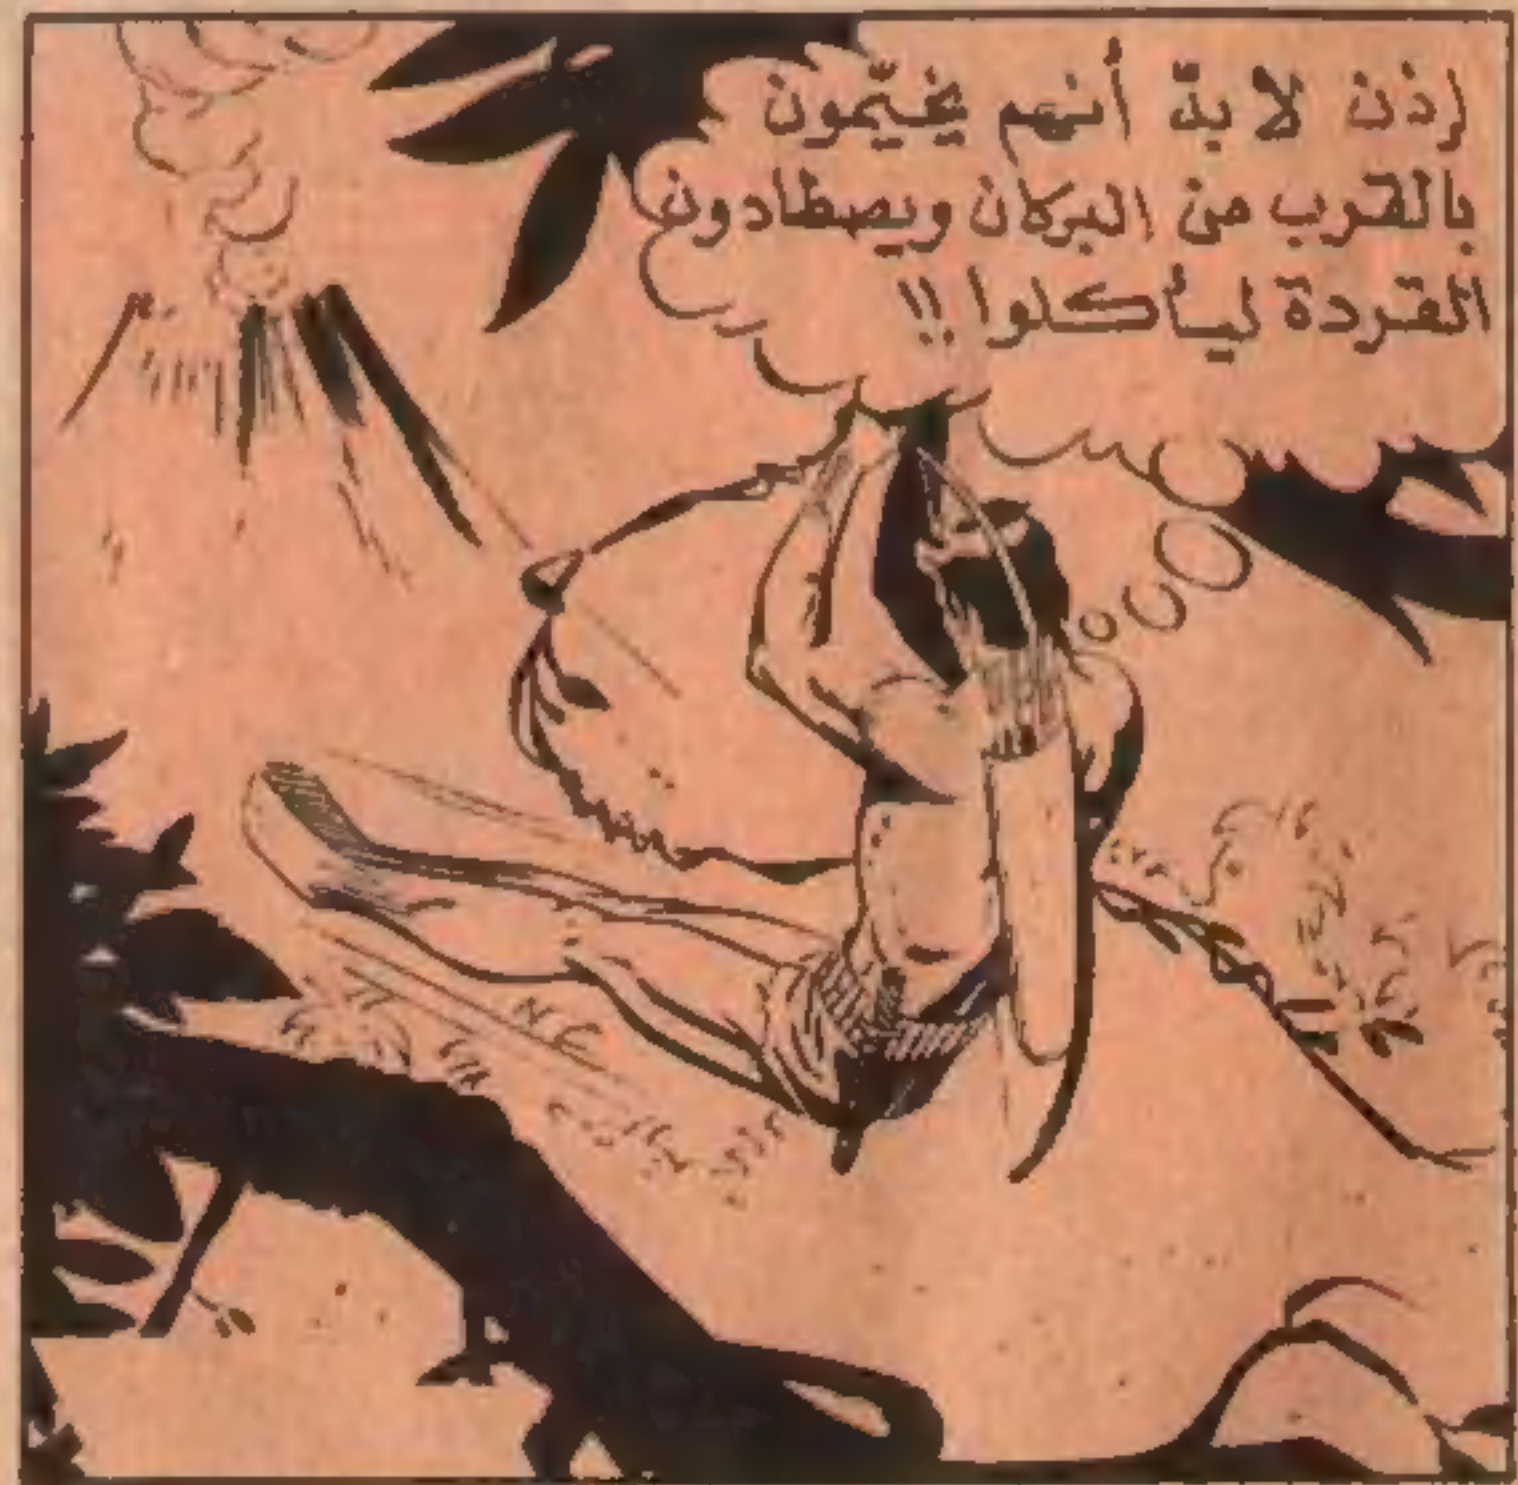 إذن لا بدّ أنهم يخيّمون
بالقرب من البركان ويصطادون
القردة ليأكلوا !!